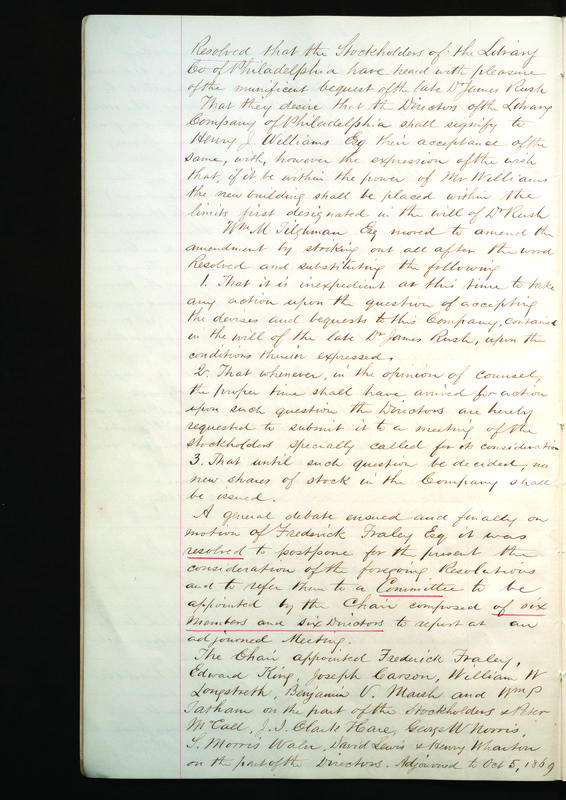 Resolved that the Stockholders of the Library
Co of Philadelphia have heard with pleasure
of the munificent bequest of the late Dr James Rush
That they desire that the Directors of the Library
Company of Philadelphia shall signify to
Henry J. Williams Esq their acceptance of the
same, with, however the expression of the wish
that, if it be within the power of Mr Williams
the new building shall be placed within the
limits first designated in the will of Dr Rush
Wm M Tilghman Esq moved to amend the
amendment by striking out all after the word
Resolved and substituting the following
1. That it is inexpedient at this time to take
any action upon the question of accepting
the devises and bequests to this Company, contained
in the will of the late Dr James Rush, upon the
conditions therein expressed.
2. That whenever, in the opinion of counsel,
the proper time shall have arrived for action
upon such question the Directors are hereby
requested to submit it to a meeting of the
stockholders specially called for its consideration
3. That until such question be decided, no
new shares of stock in the Company shall
be issued.
A general debate ensued and finally on
motion of Frederick Fraley Esq it was
resolved to postpone for the present the
consideration of the foregoing Resolutions
and to refer them to a Committee to be
appointed by the Chair composed of six
Members and six Directors to report at an
adjourned Meeting.
The Chair appointed Frederick Fraley,
Edward King, Joseph Carson, William W
Longstreth, Benjamin V. Marsh and Wm P
Tatham on the part of the Stockholders & Peter
McCall, J. I. Clark Hare, George W Norris,
S. Morris Waln, David Lewis & Henry Wharton
on the part of the Directors. Adjourned to Oct 5, 1869